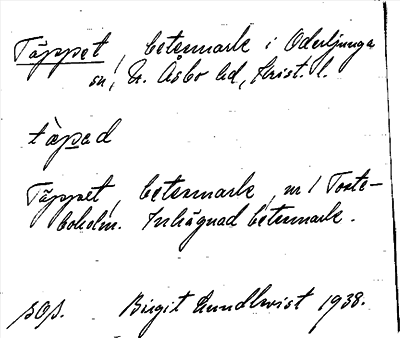 Täppet, betesmark i Oderljunga
sn, N. Åsbo hd, Krist. l.
tàpad
Täppet, betesmark, nr 1 Toste-
boholm. Inhägnad betesmark.
Birgit Lundkvist 1938.